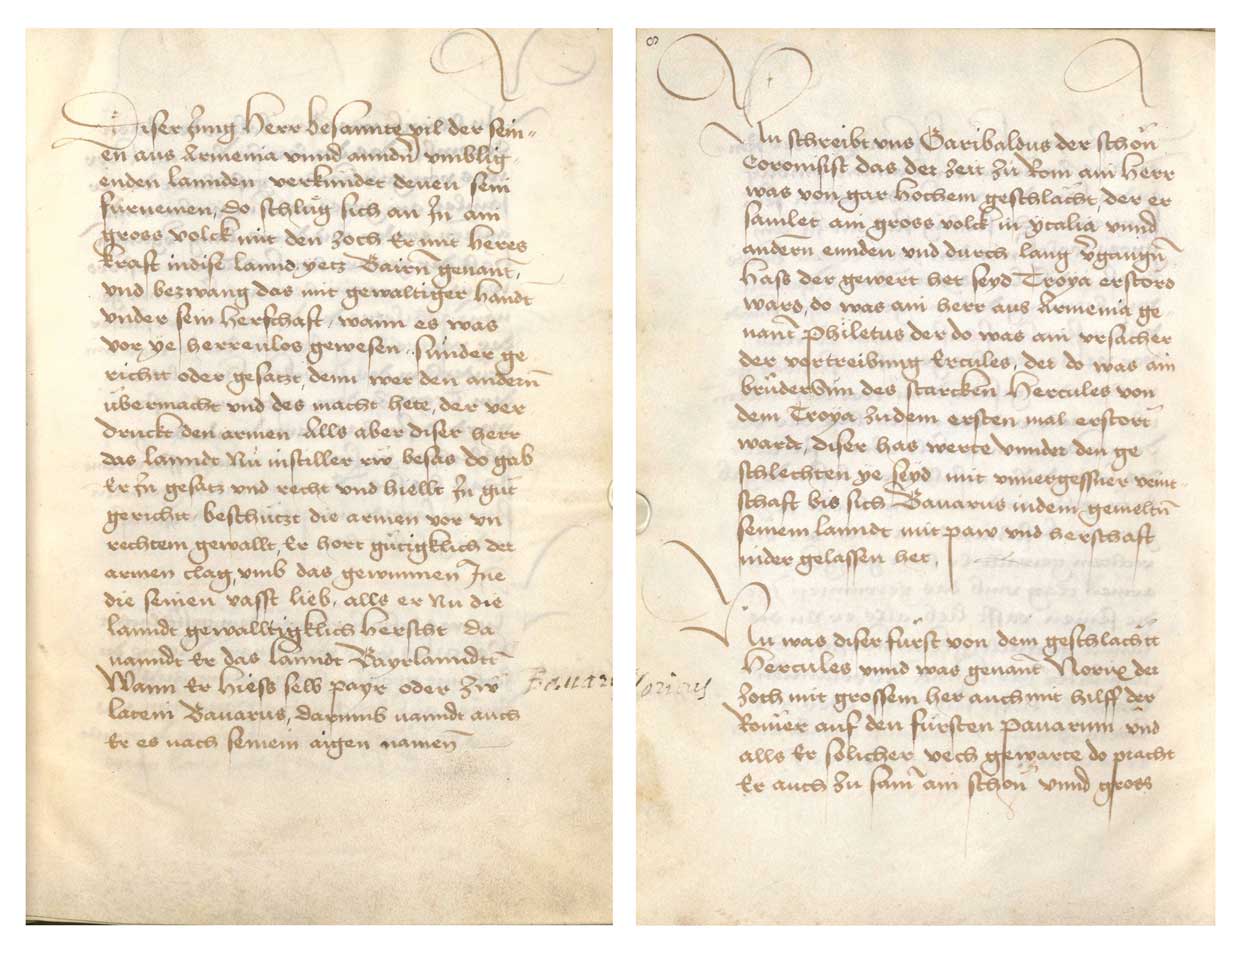 Diser Jung Herr besannte vil der sein-
en aus Armenia vnnd anndern vmblig
enden lannden verkündet denen sein
fürnemen, do schlůg sich an Jn ain
gross volck mit den zoch Er mit Heres
krafft indise lannd yetz Bairn genant,
vnd bezwang das mit gewaltiger Handt
vnder sein Herschaft, wann es was
vor ye herrenlos gewesen, sunder ge
richtt oder gesatzt, denn wer den andern
übermacht vnd des macht hete, der ver
druckt den armen Alls aber diser herr
das lanndt Nů instiller rẃ besas do gab
Er Jn gesatz vnd recht vnd hiellt Jn gut
gerichtt beschützt die armen vor vn
rechtem gewallt, Er hort gütigklich der
armen clag, vmb das gewunnen Jne
die seinen vasst lieb, alls er Nu die
lanndt gewalltigklich Herscht da
nanndt Er das lanndt Bayrlanndtt
Wann Er Hiess selb payr oder zw
latein Bauarus, darumb nanndt auch
Er es nach seinem aigen namen
Bauari
8
Nu schreibt vns Garibaldus der schön
Coronisist das der zeit zu Rom ain Herr
was von gar Hochem geschlächt, der er
samlet ain gross volck in ytalia vnnd
andern ennden vnd durch lang vergangen
Hass der gewert het seyd Troya erstord
ward, do was ain herr aus Armenia ge
nant Philetus der do was ain vrsacher
der vertreibung Ercules, der do was ain
brüder Sun des starcken Hercules von
dem Troya zudem ersten mal erstort
wardt, diser has werte vnnder den ge
schlechten ye seyd mit vnuergessner veint
schaft bis sich Bauarus indem gemelten
seinem lanndt mit paw vnd herschaft
nider gelassen het,
Noricus
Nu was diser fürst von dem geschlächtt
Hercules vnnd was genant Norix der
zoch mit grossem her auch mit hilff der
Römer auf den fürsten pauarum vnd
alls Er sölicher vech gewarte do pracht
Er auch zu sam ain schön vnnd gross